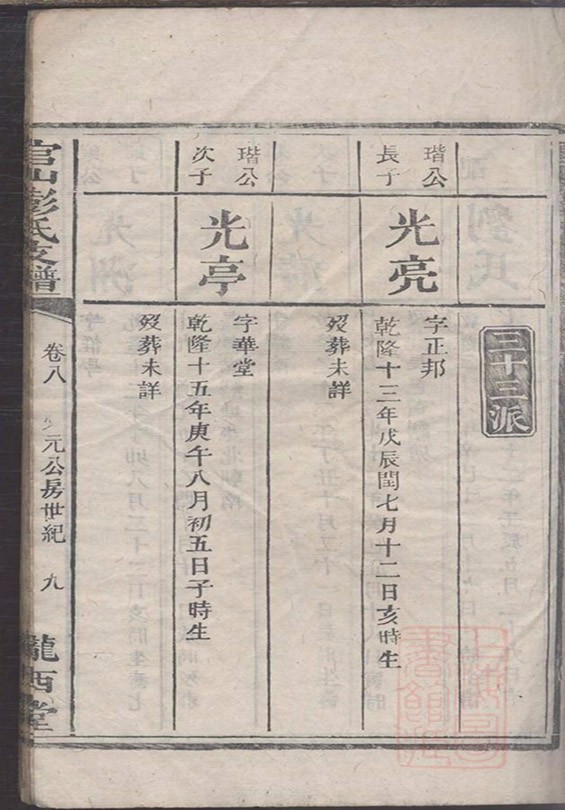 三十三派
瑎公
長子
光亮
字正邦
乾隆十三年戊辰閏七月十二日亥時生
歿葬未詳
瑎公
次子
光亭
字華堂
乾隆十五年庚午八月初五日子時生
歿葬未詳
官山彭氏支譜
卷八
元公房世紀
九
隴西堂